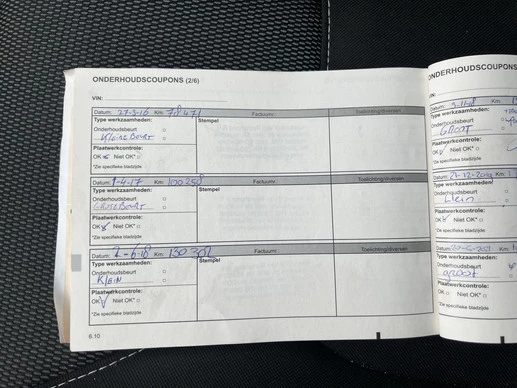 ONDERHOUDSCOUPONS (2/6)
VIN:
Datum: 27-3-16 Km: 78471 Factuurnr.: Toelichting/diversen
Type werkzaamheden: Stempel
Onderhoudsbeurt
KleineBeurt
Plaatwerkcontrole:
OK Niet OK*
*Zie specifieke bladzijde
Datum: 1-4-17 Km: 100258 Factuurnr.: Toelichting/diversen
Type werkzaamheden: Stempel
Onderhoudsbeurt
GroteBeurt
Plaatwerkcontrole:
OK Niet OK*
*Zie specifieke bladzijde
Datum: 2-6-18 Km: 130301 Factuurnr.: Toelichting/diversen
Type werkzaamheden: Stempel
Onderhoudsbeurt
Klein
Plaatwerkcontrole:
OK Niet OK*
*Zie specifieke bladzijde
6.10
ONDERHOUDSCOUPONS
VIN:
Datum: Km:
Type werkzaamheden:
Onderhoudsbeurt
GROOT
Plaatwerkcontrole:
OK Niet OK*
*Zie specifieke bladzijde
Datum: Km:
Type werkzaamheden:
Onderhoudsbeurt
klein
Plaatwerkcontrole:
OK Niet OK*
*Zie specifieke bladzijde
Datum: Km:
Type werkzaamheden:
Onderhoudsbeurt
groot
Plaatwerkcontrole:
OK Niet OK*
*Zie specifieke bladzijde